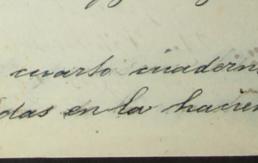 cuarto cuadern
das en la hacien